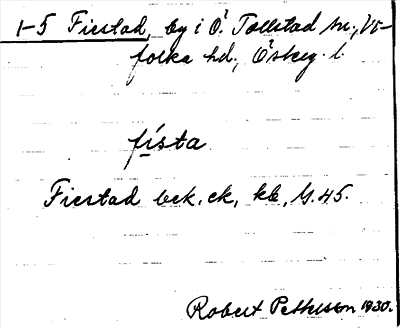 1-5 Fiestad, by i Ö. Tollstad sn., Vi-
folka hd., Östkg. l.
físta
Fiestad bek. ek, kb, 
Robert Pettersson 1930.